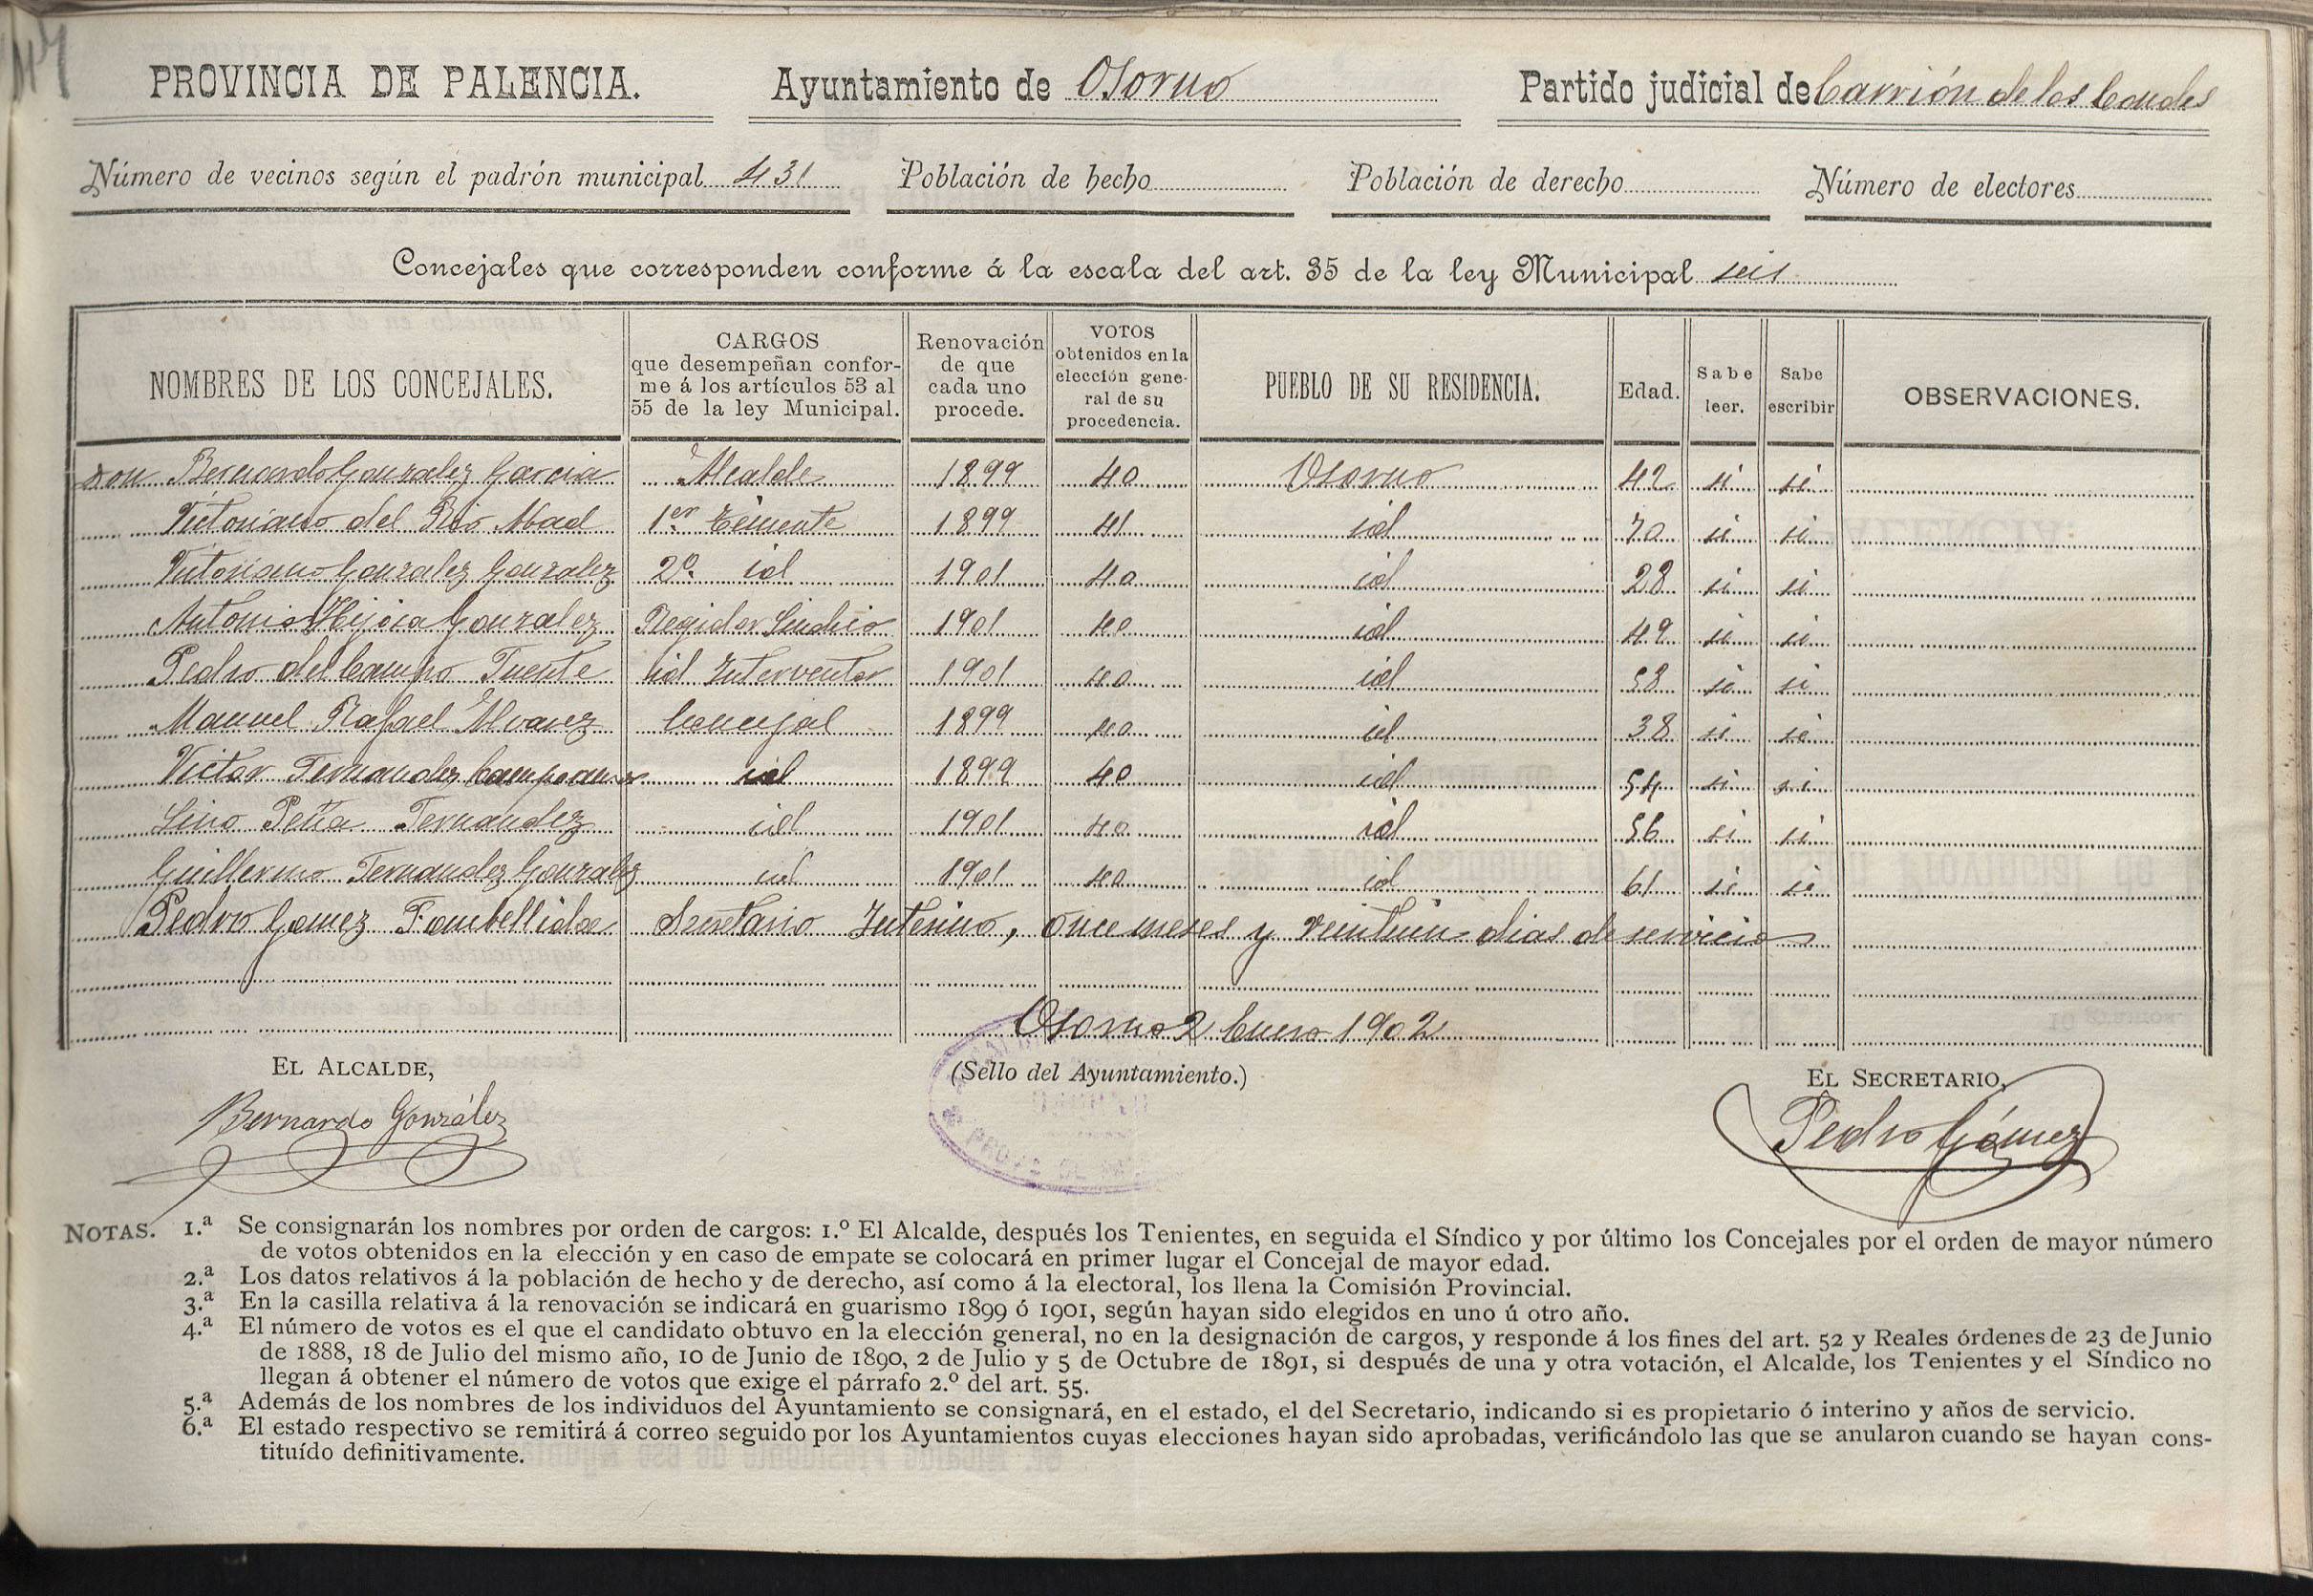 PROVINCIA DE PALENCIA. Ayuntamiento de Osorno Partido judicial de Carrión de los Condes
Número de vecinos según el padrón municipal 431 Población de hecho Población de derecho Número de electores
Concejales que corresponden conforme á la escala del art. 35 de la ley Municipal seis
NOMBRES DE LOS CONCEJALES. CARGOS que desempeñan conforme á los artículos 53 al 55 de la ley Municipal. Renovación de que cada uno procede. VOTOS obtenidos en la elección general de su procedencia. PUEBLO DE SU RESIDENCIA. Edad. Sabe leer. Sabe escribir OBSERVACIONES.
Don Bernardo Gonzalez Garcia Alcalde 1899 40 Osorno 42 si si
Victoriano del Rio Abad 1er Teniente 1899 41 id 70 si si
Victoriano Gonzalez Gonzalez 2º id 1901 40 id 28 si si
Antonio Hijosa Gonzalez Regidor Sindico 1901 40 id 49 si si
Pedro del Campo Fuente id Interventor 1901 40 id 58 si si
Manuel Rafael Alvarez Concejal 1899 40 id 38 si si
Victor Fernandez Campomanes id 1899 40 id 54 si si
Lino Peña Fernandez id 1901 40 id 56 si si
Guillermo Fernandez Gonzalez id 1901 40 id 61 si si
Pedro Gomez Fombellida Secretario Interino, once meses y veintiun dias de servicio
Osorno 2 Enero 1902
EL ALCALDE, (Sello del Ayuntamiento.) EL SECRETARIO,
Bernardo González Pedro Gómez
NOTAS. 1.ª Se consignarán los nombres por orden de cargos: 1.º El Alcalde, después los Tenientes, en seguida el Síndico y por último los Concejales por el orden de mayor número
de votos obtenidos en la elección y en caso de empate se colocará en primer lugar el Concejal de mayor edad.
2.ª Los datos relativos á la población de hecho y de derecho, así como á la electoral, los llena la Comisión Provincial.
3.ª En la casilla relativa á la renovación se indicará en guarismo 1899 ó 1901, según hayan sido elegidos en uno ú otro año.
4.ª El número de votos es el que el candidato obtuvo en la elección general, no en la designación de cargos, y responde á los fines del art. 52 y Reales órdenes de 23 de Junio
de 1888, 18 de Julio del mismo año, 10 de Junio de 1890, 2 de Julio y 5 de Octubre de 1891, si después de una y otra votación, el Alcalde, los Tenientes y el Síndico no
llegan á obtener el número de votos que exige el párrafo 2.º del art. 55.
5.ª Además de los nombres de los individuos del Ayuntamiento se consignará, en el estado, el del Secretario, indicando si es propietario ó interino y años de servicio.
6.ª El estado respectivo se remitirá á correo seguido por los Ayuntamientos cuyas elecciones hayan sido aprobadas, verificándolo las que se anularon cuando se hayan cons-
tituído definitivamente.